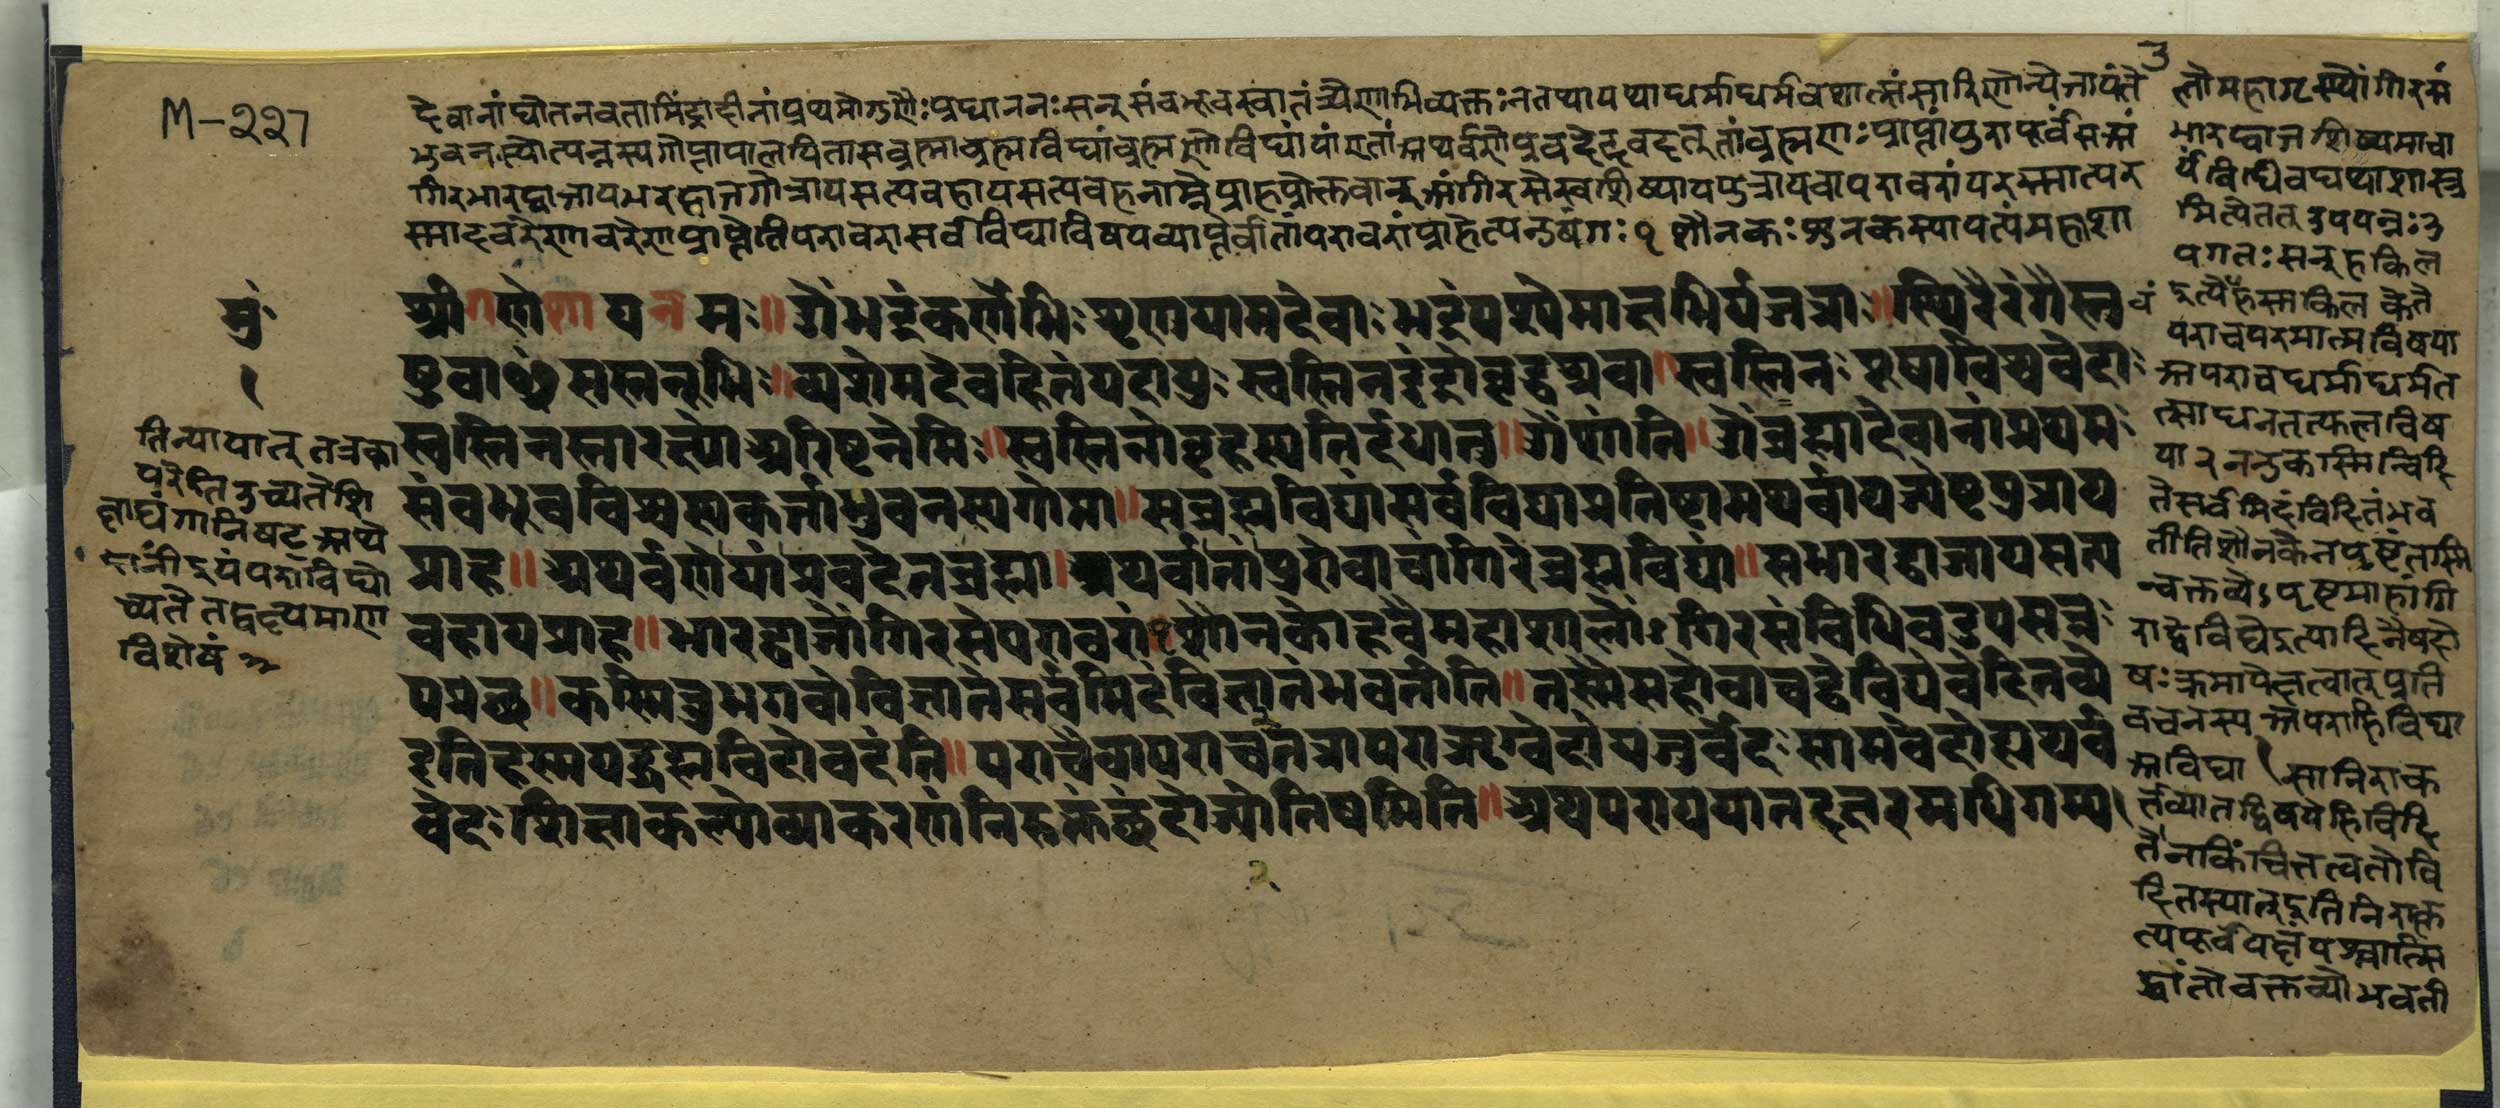 M-२२७
देवानां द्योतनवतामिंद्रादीनां प्रथमो गुणैः प्रधाननः सन् संबभूव स्वातंत्र्येणाभिव्यक्तः न तथा यथा धर्माधर्मवशात्संसारिणोन्ये जायंते
भुवनस्योत्पन्नस्य गोप्ता पालयिता स ब्रह्मा ब्रह्मविद्यां ब्रह्मणो विद्यां यां एतां अथर्वणे प्रवदेत् अवदत् तां ब्रह्मणः प्राप्तां पुरा पूर्वं स अं
गिर भारद्वाजाय भरद्वाजगोत्राय सत्यवहाय सत्यवहनाम्ने प्राह प्रोक्तवान् अंगीरसे स्वशिष्याय पुत्राय वा परावरां परस्मात्पर
स्मादवरेणावरेण प्राप्तेति परावरा सर्वविद्याविषयव्याप्तेर्वा तां परावरां प्राहेत्यनुषंगः १ शौनकः शुनकस्यापत्यं महाशा
लो महागृहस्थोंगीरसं
भारद्वाजशिष्यमाचा
र्यं विधिवद्यथाशास्त्र
मित्येतत् उपपन्नः उ
पगतः सन् ह किल
इत्येवं ह स्म किल के ते
परा च परमात्मविषया
अपरा च धर्माधर्मत
त्साधनतत्फलविष
या २ ननु कस्मिन्विदि
ते सर्वमिदं विदितं भव
तीति शौनकेन पृष्टं तस्मि
न्वक्तव्येऽपृष्टमाहांगि
रा द्वे विद्ये इत्यादि नैष दो
षः क्रमापेक्षत्वात् प्रति
वचनस्य अपरा हि विद्या
अविद्या सा निराक
र्तव्या तद्विषये हि विदि
ते न किंचित्तत्वतो वि
दितं स्यात् इति निराकृ
त्य पूर्वपक्षं पश्चात्सि
द्धांतो वक्तव्यो भवती
ति न्यायात् तत्र का
परेति उच्यते शि
क्षाद्यंगानि षट् अथे
दानीं इयं परा विद्यो
च्यते तद्वक्ष्यमाण
विशेषं
मुं॰
१
श्रीगणेशाय नमः॥ ॐ भद्रं कर्णेभिः शृणुयाम देवाः भद्रं पश्येमाक्षभिर्यजत्राः॥ स्थिरैरंगैस्तु
ष्टुवाꣳसस्तनूभिः॥ व्यशेम देवहितं यदायुः स्वस्ति न इंद्रो वृद्धश्रवा॥ स्वस्ति नः पूषा विश्ववेदाः
स्वस्ति नस्तार्क्ष्यो अरिष्टनेमिः॥ स्वस्ति नो बृहस्पतिर्दधातु॥ ॐ शांति॥ ॐ ब्रह्मा देवानां प्रथमः
संबभूव विश्वस्य कर्ता भुवनस्य गोप्ता॥ स ब्रह्मविद्यां सर्वविद्याप्रतिष्ठामथर्वाय ज्येष्ठपुत्राय
प्राह॥ अथर्वणे यां प्रवदेत ब्रह्मा। अथर्वा तां पुरोवाचांगिरे ब्रह्मविद्यां॥ स भारद्वाजाय सत्य
वहाय प्राह॥ भारद्वाजोंगिरसे परावरां १ शौनको ह वै महाशालोंऽगिरसं विधिवदुपसन्नः
पप्रच्छ॥ कस्मिन्नु भगवो विज्ञाते सर्वमिदं विज्ञातं भवतीति॥ तस्मै स होवाच द्वे विद्ये वेदितव्ये
इति ह स्म यद्ब्रह्मविदो वदंति॥ परा चैवापरा च तत्रापरा ऋग्वेदो यजुर्वेदः सामवेदो ह्यथर्व
वेदः शिक्षा कल्पो व्याकरणं निरुक्तं छंदो ज्योतिषमिति॥ अथ परा यया तदक्षरमधिगम्य